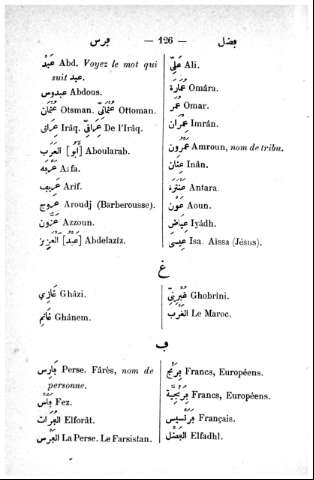 ڢرس — 126 — ڢضل
عَبْدُ Abd. Voyez le mot qui
suit عبد.
عبدوس Abdous.
عُثْمَان Otsman. عُثْمَانِيّ Ottoman.
عِراق Irâq. عِرَاقِيّ De l'Irâq.
[أَبُو] العَرَب Aboularab.
عَرْفة Arfa.
عَرِيف Arif.
عَرُوج Aroudj (Barberousse).
عَزُّون Azzoun.
[عَبْدُ] العَزِيز Abdelaziz.
عَلِيّ Ali.
عُمَارَة Omâra.
عُمَر Omar.
عِمْرَان Imrân.
عَمْرُون Amroun, nom de tribu.
عِنَان Inân.
عَنْتَرَة Antara.
عَوْن Aoun.
عِيَاض Iyâdh.
عِيسَى Isa. Aïssa (Jésus).
غ
غَازِي Ghâzi.
غَانِم Ghânem.
غُبْرِينِيّ Ghobrini.
الغَرْب Le Maroc.
ڢ
ڢَارِس Perse. Fârès, nom de
personne.
ڢَاس Fez.
الڢُرَات Elforât.
الڢُرْس La Perse. Le Farsistan.
ڢْرَنْج Francs, Européens.
ڢْرَنْجِيَّة Francs, Européens.
ڢْرَنْسِيس Français.
الڢَضْل Elfadhl.